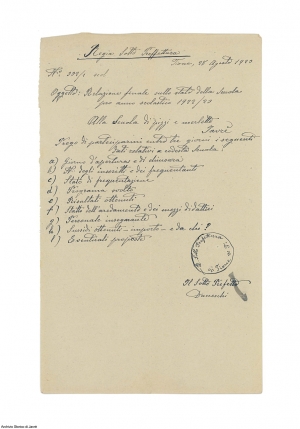 Regia Sotto Prefettura
28 Agosto 1920
N°
Oggetto: Relazione finale sullo stato della Scuola
per anno scolastico
Alla Scuola di pizzi e merletti
Prego di parteciparmi entro tre giorni i seguenti
dati relativi a codesta Scuola:
a) Giorno d'apertura e di chiusura
b) N. degli inscritti e dei frequentanti
c) Stato di frequentazione
d) Programma svolto
e) Risultati ottenuti
f) Stato dell'arredamento e dei mezzi didattici
g) Personale insegnante
h) Sussidi ottenuti - importo - e da chi?
i) Eventuali proposte
Il Sotto Prefetto